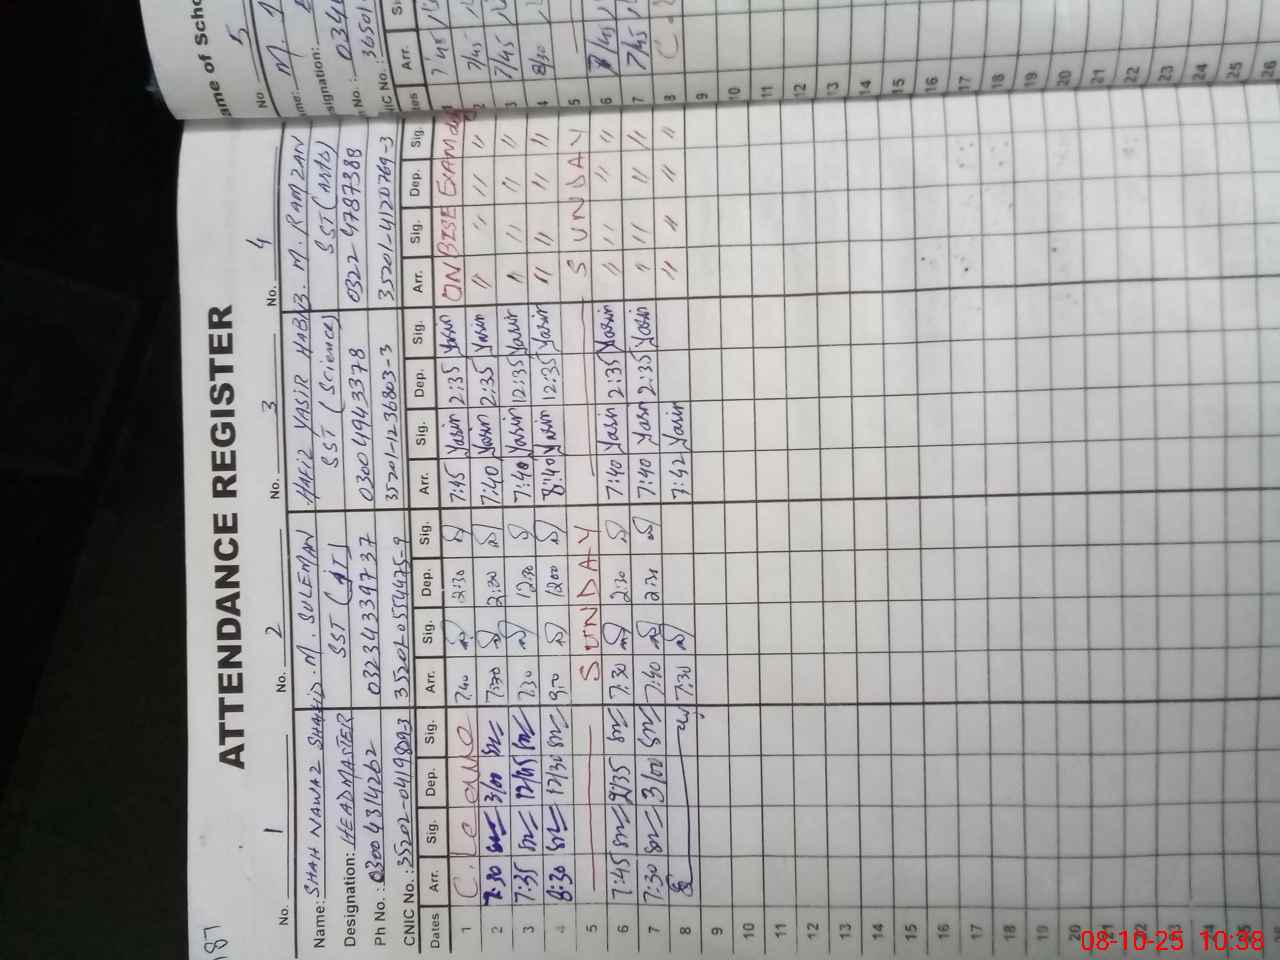 187
ATTENDANCE REGISTER
No. 1 No. 2 No. 3 No. 4
Name: SHAH NAWAZ SHAHID. M. SULEMAN HAFIZ YASIR HABIB. M. RAMZAN
Designation: HEADMASTER SST (IT) SST (Science) SST (Arts)
Ph No.: 03004314262 03234339737 03004943378 0322-4787388
CNIC No.: 35202-0419809-3 35202-0554475-9 35201-1236803-3 35201-4120769-3
Dates Arr. Sig. Dep. Sig. Arr. Sig. Dep. Sig. Arr. Sig. Dep. Sig. Arr. Sig. Dep. Sig.
1 7:40 2:30 7:45 Yasir 2:35 Yasir ON BISE EXAM duty
2 7:30 3/00 7:30 2:30 7:40 Yasir 2:35 Yasir " " " "
3 7:35 12/45 7:30 12:30 7:40 Yasir 12:35 Yasir " " " "
4 8:30 12/30 9:00 1200 8:40 Yasir 12:35 Yasir " " " "
5 SUNDAY SUNDAY
6 7:45 2/35 7:30 2:30 7:40 Yasir 2:35 Yasir " " " "
7 7:30 3/00 7:40 2:30 7:40 Yasir 2:35 Yasir " " " "
8 7:30 7:42 Yasir " " " "
9
10
11
12
13
14
15
16
17
18
19
20
21
22
23
24
25
26
Name of Scho
No 5
M.
signation:
No.: 034
NIC No.: 36501
tes Arr. Si
1 7/45
2 7/45
3 7/45
4 8/30
5
6 7/45
7 7/45
8 C
9
10
11
12
13
14
15
16
17
18
19
20
21
22
23
24
25
26
08-10-25 10:38